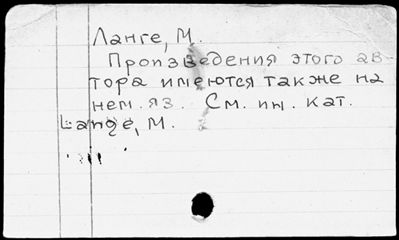 Ланге, М.
Произведения этого ав
тора имеются также на
нем. яз. См. ин. кат.
Lange, M.